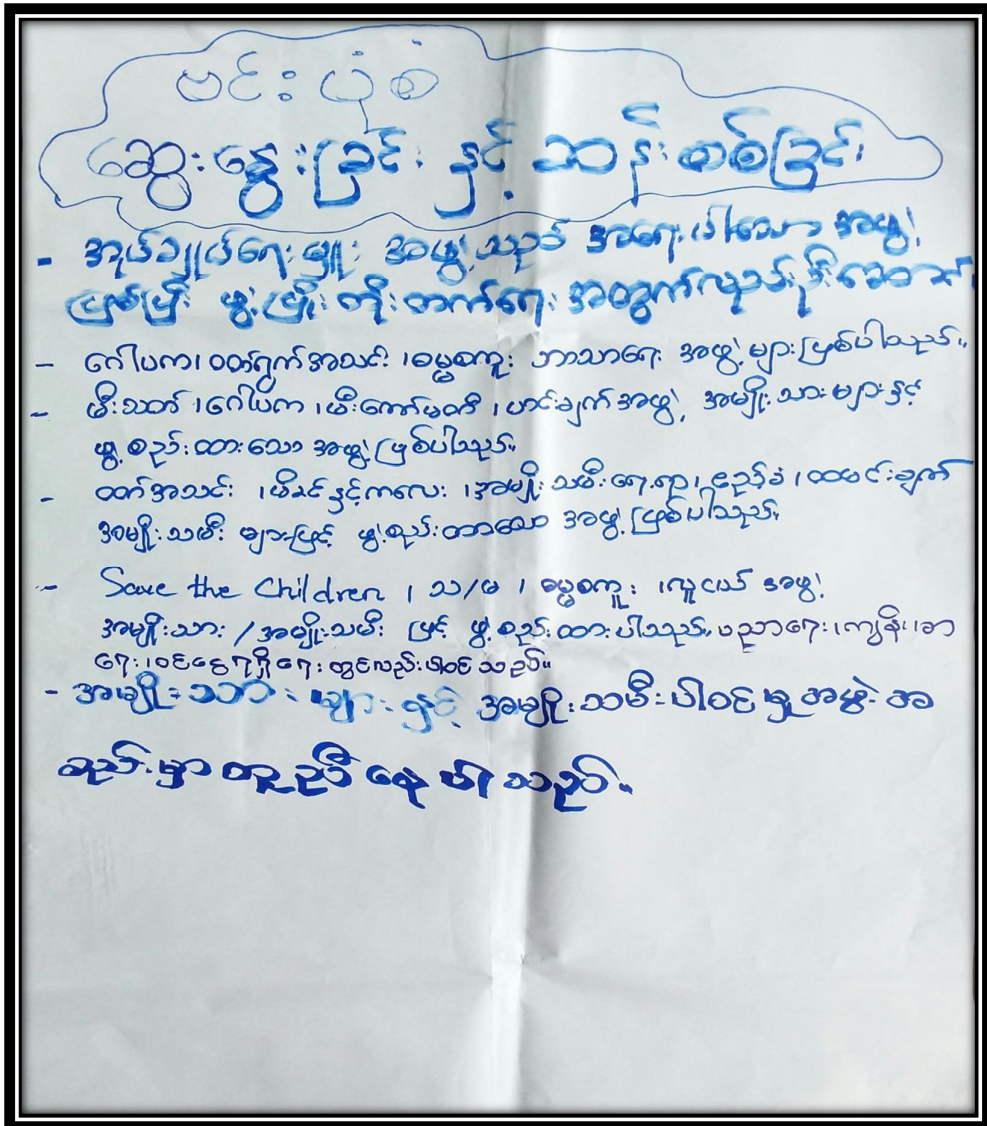 ဗင်းပုံစံ
ဆွေးနွေးခြင်း နှင့် ဆန်းစစ်ခြင်း
- အုပ်ချုပ်ရေးမှူး အဖွဲ့သည် အရေးပါသော အဖွဲ့
ဖြစ်ပြီး ဖွံ့ဖြိုးတိုးတက်ရေး အတွက်လည်း
- ဂေါပက၊ ဝတ်ရွတ်အသင်း ၊ဓမ္မစကူး ဘာသာရေး အဖွဲ့များ ဖြစ်ပါသည်။
- မီးသတ် ၊ဂေါပက ၊မီးကော်မတီ ၊ဟင်းချက်အဖွဲ့ အမျိုးသားများနှင့်
ဖွဲ့စည်းထားသော အဖွဲ့ဖြစ်ပါသည်။
- ဝတ်အသင်း ၊မိခင်နှင့်ကလေး ၊အမျိုးသမီးရေးရာ၊ ဧည့်ခံ ၊ထမင်းချက်
အမျိုးသမီး များဖြင့် ဖွဲ့စည်းထားသော အဖွဲ့ဖြစ်ပါသည်။
- Save the Children ၊ သ/မ ၊ ဓမ္မစကူး ၊လူငယ် အဖွဲ့
အမျိုးသား / အမျိုးသမီး ဖြင့် ဖွဲ့စည်းထားပါသည်။ ပညာရေး ၊ကျန်းမာ
ရေး ၊ဝင်ငွေရရှိရေး တွင်လည်းပါဝင်သည်။
- အမျိုးသားများနှင့် အမျိုးသမီးပါဝင်မှု အဖွဲ့အ
စည်းမှာ တူညီနေပါသည်။